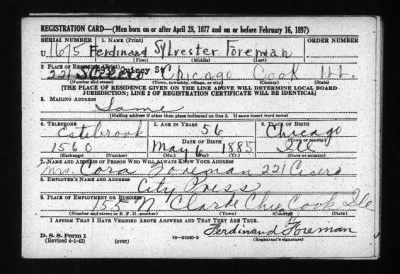 REGISTRATION CARD—(Men born on or after April 28, 1877 and on or before February 16, 1897)
SERIAL NUMBER 1. NAME (Print) ORDER NUMBER
U 1615 Ferdinand Sylvester Foreman
(First) (Middle) (Last)
2. PLACE OF RESIDENCE (Print)
221 Chicago Cook Ill.
(Number and street) (Town, township, village, or city) (County) (State)
[THE PLACE OF RESIDENCE GIVEN ON THE LINE ABOVE WILL DETERMINE LOCAL BOARD
JURISDICTION; LINE 2 OF REGISTRATION CERTIFICATE WILL BE IDENTICAL]
3. MAILING ADDRESS
Same
[Mailing address if other than place indicated on line 2. If same insert word same]
4. TELEPHONE 5. AGE IN YEARS 6. PLACE OF BIRTH
56 Chicago
DATE OF BIRTH (Town or county)
1560 May 6 1885 Ill
(Exchange) (Number) (Mo.) (Day) (Yr.) (State or country)
7. NAME AND ADDRESS OF PERSON WHO WILL ALWAYS KNOW YOUR ADDRESS
Mrs Cora Foreman 221 Cicero
8. EMPLOYER'S NAME AND ADDRESS
City Press
9. PLACE OF EMPLOYMENT OR BUSINESS
155 N Clark Chic Cook Ill
(Number and street or R. F. D. number) (Town) (County) (State)
I AFFIRM THAT I HAVE VERIFIED ABOVE ANSWERS AND THAT THEY ARE TRUE.
D. S. S. Form 1
(Revised 4-1-42) (over) 16—21630-2
Ferdinand Foreman
(Registrant's signature)